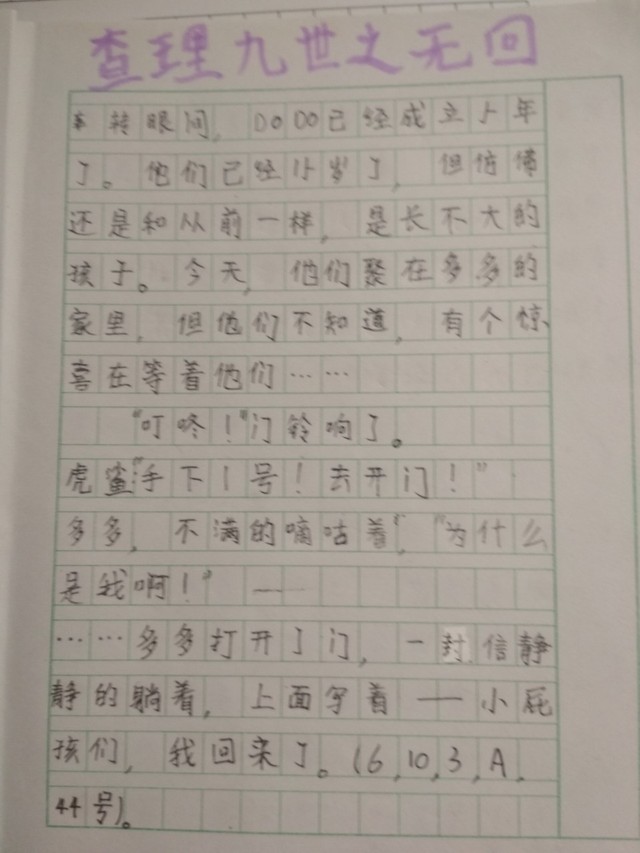 查理九世之无回
转眼间，DODO已经成立5年
了。他们已经15岁了，但仿佛
还是和从前一样，是长不大的
孩子。今天，他们聚在多多的
家里，但他们不知道，有个惊
喜在等着他们……
“叮咚！”门铃响了。
虎鲨：“手下1号！去开门！”
多多，不满的嘀咕着“，“为什么
是我啊！” —
……多多打开了门，一封信静
静的躺着，上面字着——小屁
孩们，我回来了。(6,10,3,A,
44号)。